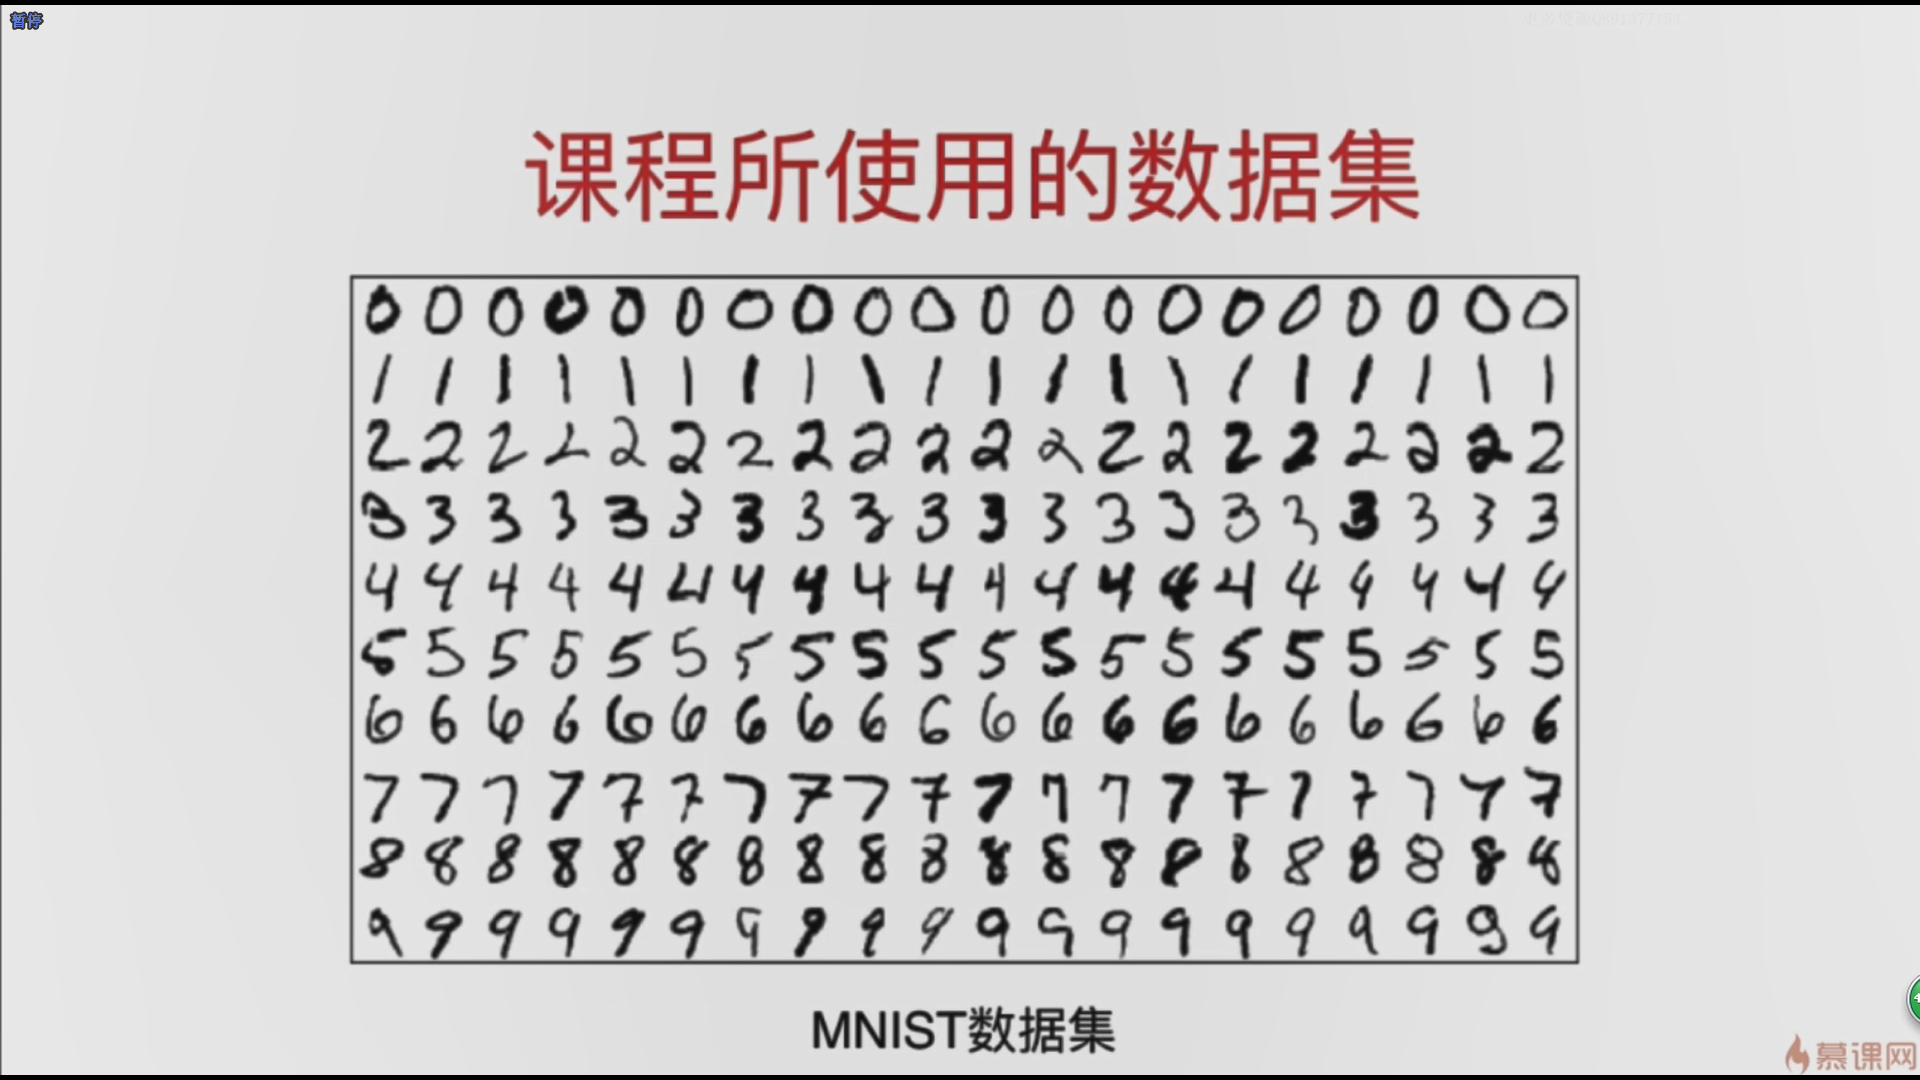 暂停
课程所使用的数据集
0 0 0 0 0 0 0 0 0 0 0 0 0 0 0 0 0 0 0 0
1 1 1 1 1 1 1 1 1 1 1 1 1 1 1 1 1 1 1 1
2 2 2 2 2 2 2 2 2 2 2 2 2 2 2 2 2 2 2 2
3 3 3 3 3 3 3 3 3 3 3 3 3 3 3 3 3 3 3 3
4 4 4 4 4 4 4 4 4 4 4 4 4 4 4 4 4 4 4 4
5 5 5 5 5 5 5 5 5 5 5 5 5 5 5 5 5 5 5 5
6 6 6 6 6 6 6 6 6 6 6 6 6 6 6 6 6 6 6 6
7 7 7 7 7 7 7 7 7 7 7 7 7 7 7 7 7 7 7 7
8 8 8 8 8 8 8 8 8 8 8 8 8 8 8 8 8 8 8 8
9 9 9 9 9 9 9 9 9 9 9 9 9 9 9 9 9 9 9 9
MNIST数据集
慕课网